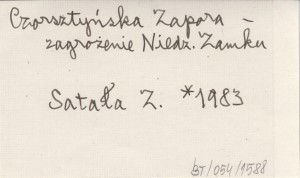 Czorsztyńska Zapora –
zagrożenie Niedz. Zamku
Satała Z. *1983
BT/054/1588